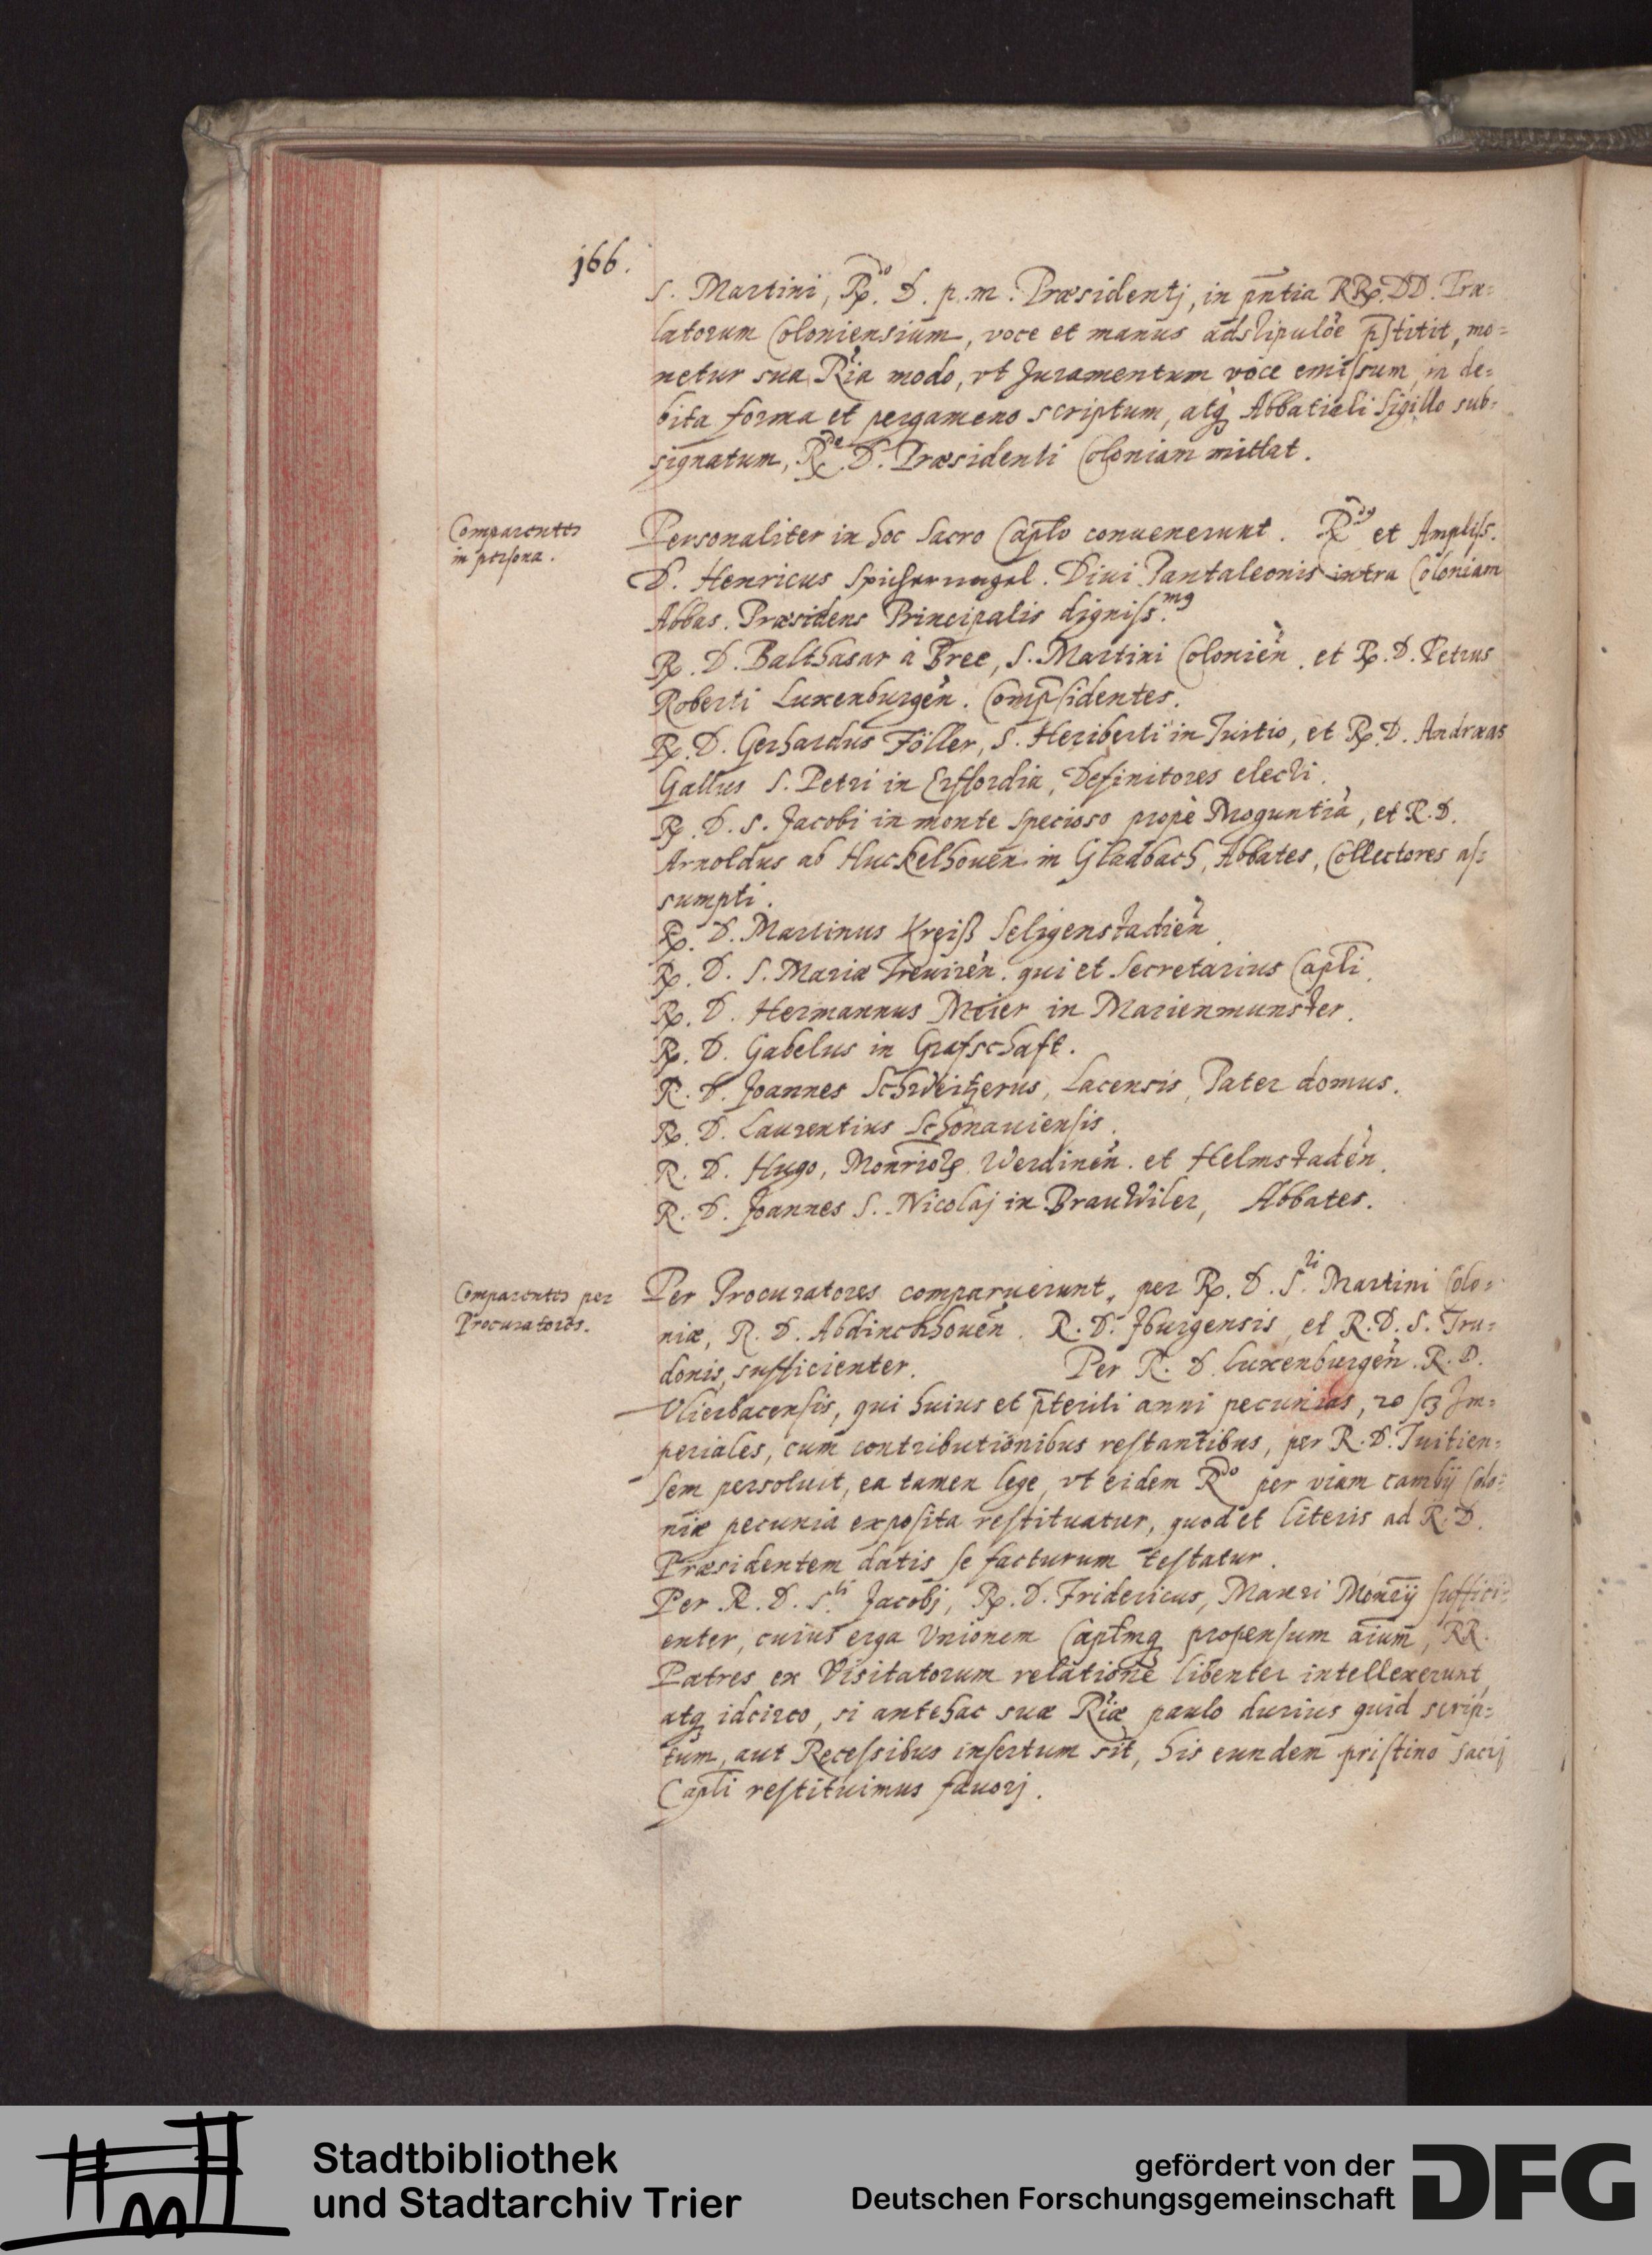 166.
S. Martini, Rp.do D. p. m. Præsidentj, in pñtia RRp. DD. Præ=
latorum Coloniensium, voce et manus adstipulõe p̃stitit, mo=
netur sua Rĩa modo, vt Juramentum voce emissum, in de=
bita forma et pergameno scriptum, atq̃ Abbatiali Sigillo sub=
signatum, Rp.do D. Præsidenti Coloniam mittat.
Comparentes
in persona.
Personaliter in hoc Sacro Caplo conuenerunt. R et Ampliss.
D. Henricus Spichernagel. Diui Pantaleonis intra Coloniam
Abbas. Præsidens Principalis digniss.mg
Rp. D. Balthasar à Bree, S. Martini Colonieñ. et Rp. D. Petrus
Roberti Luxenburgeñ. Comp̃sidentes.
Rp. D. Gerhardus Föller, S. Heriberti in Tuitio, et Rp. D. Andræas
Gallus S. Petri in Erffordia, Definitores electi.
Rp. D. S. Jacobi in monte specioso propè Moguntiã, et R. D.
Arnoldus ab Huckelhouen in Gladbach, Abbates, Collectores as=
sumpti.
Rp. D. Martinus Kreiß Seligenstadieñ.
Rp. D. S. Mariæ Treuireñ. qui et Secretarius Capli.
Rp. D. Hermannus Meier in Marienmunster.
Rp. D. Gabelus in Grafschaft.
R. D. Joannes Schweitzerus, Lacensis, Pater domus.
Rp. D. Laurentius Schonauiensis.
R. D. Hugo, Monrioꝝ Werdineñ. et Helmstadeñ.
R. D. Joannes S. Nicolaj in Brauwiler, Abbates.
Comparentes per
Procuratores.
Per Procuratores comparuerunt, per Rp. D. S.ti Martini Colo=
niæ, R. D. Abdinckhoueñ. R. D. Jburgensis, et R. D. S. Tru=
donis, sufficienter. Per R. D. Luxenburgeñ. R. D.
Vlierbacensis, qui huius et p̃teriti anni pecunias, 20 Im=
periales, cum contributionibus restantibus, per R. D. Tuitien=
sem persoluit, ea tamen lege, vt eidem Rdo per viam cambij Colo=
niæ pecunia exposita restituatur, quod et literis ad R. D.
Præsidentem datis se facturum testatur.
Per R. D. S.ti Jacobj, Rp. D. Fridericus, Maxri Monrij suffici=
enter, cuius erga Vnionem Caplmq̃ propensum aium̃, RR.
Patres ex Visitatorum relatione libenter intellexerunt,
atq̃ idcirco, si antehac suæ Rĩæ paulo durius quid scrip=
tum, aut Recessibus insertum sit, his eundem pristino sacrj
Capli restituimus fauorj.
Stadtbibliothek
und Stadtarchiv Trier
gefördert von der
Deutschen Forschungsgemeinschaft
DFG